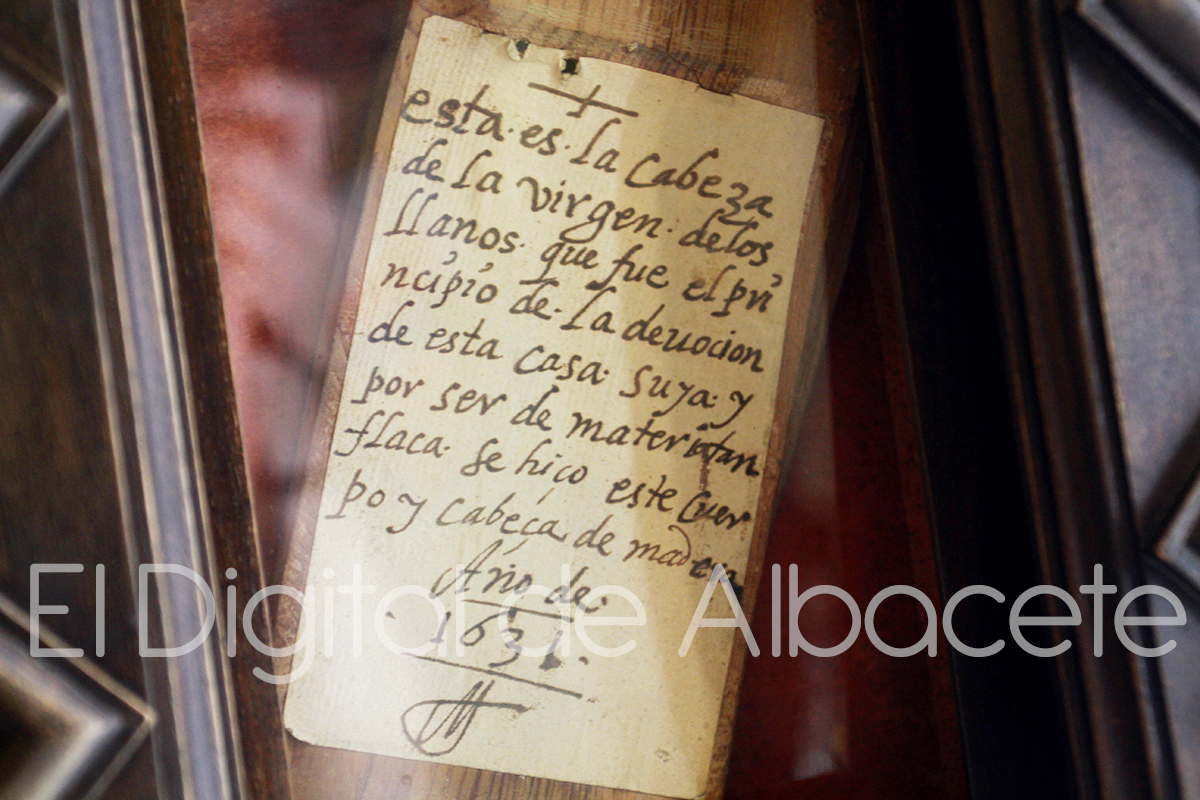 esta·es·la cabeza
de la virgen·delos
llanos·que fue el pri
ncipio de·la deuocion
de esta casa·suya·y
por ser de materiatan
flaca·se hiço este cuer
po y cabeça de madera
Año de·
·1631·
El Digital de Albacete